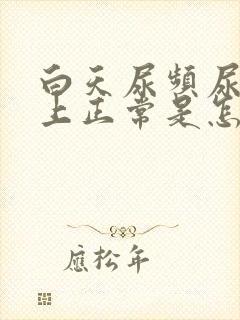 白天尿频尿
上正常是怎
应松年